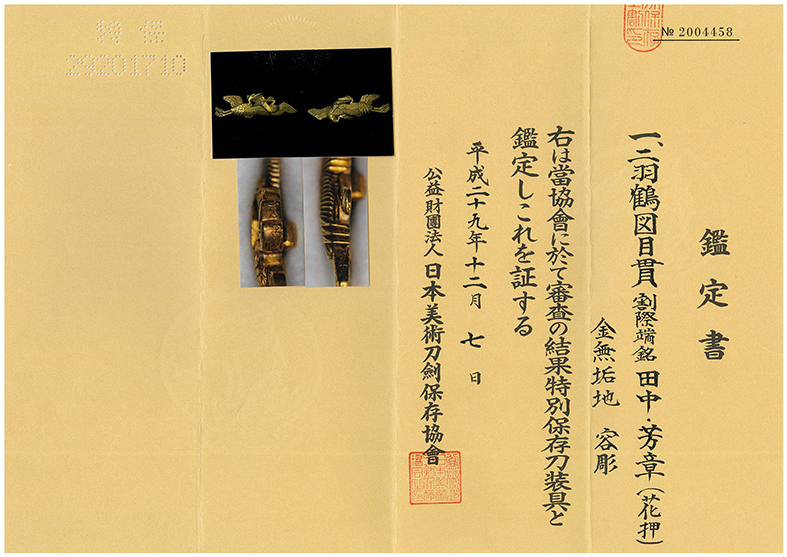 № 2004458
鑑定書
一、二羽鶴図目貫 割際端銘 田中・芳章(花押)
金無垢地 容彫
右は當協會に於て審査の結果特別保存刀装具と
鑑定しこれを証する
平成二十九年十二月 七 日
公益財團法人 日本美術刀劍保存協會
29201710